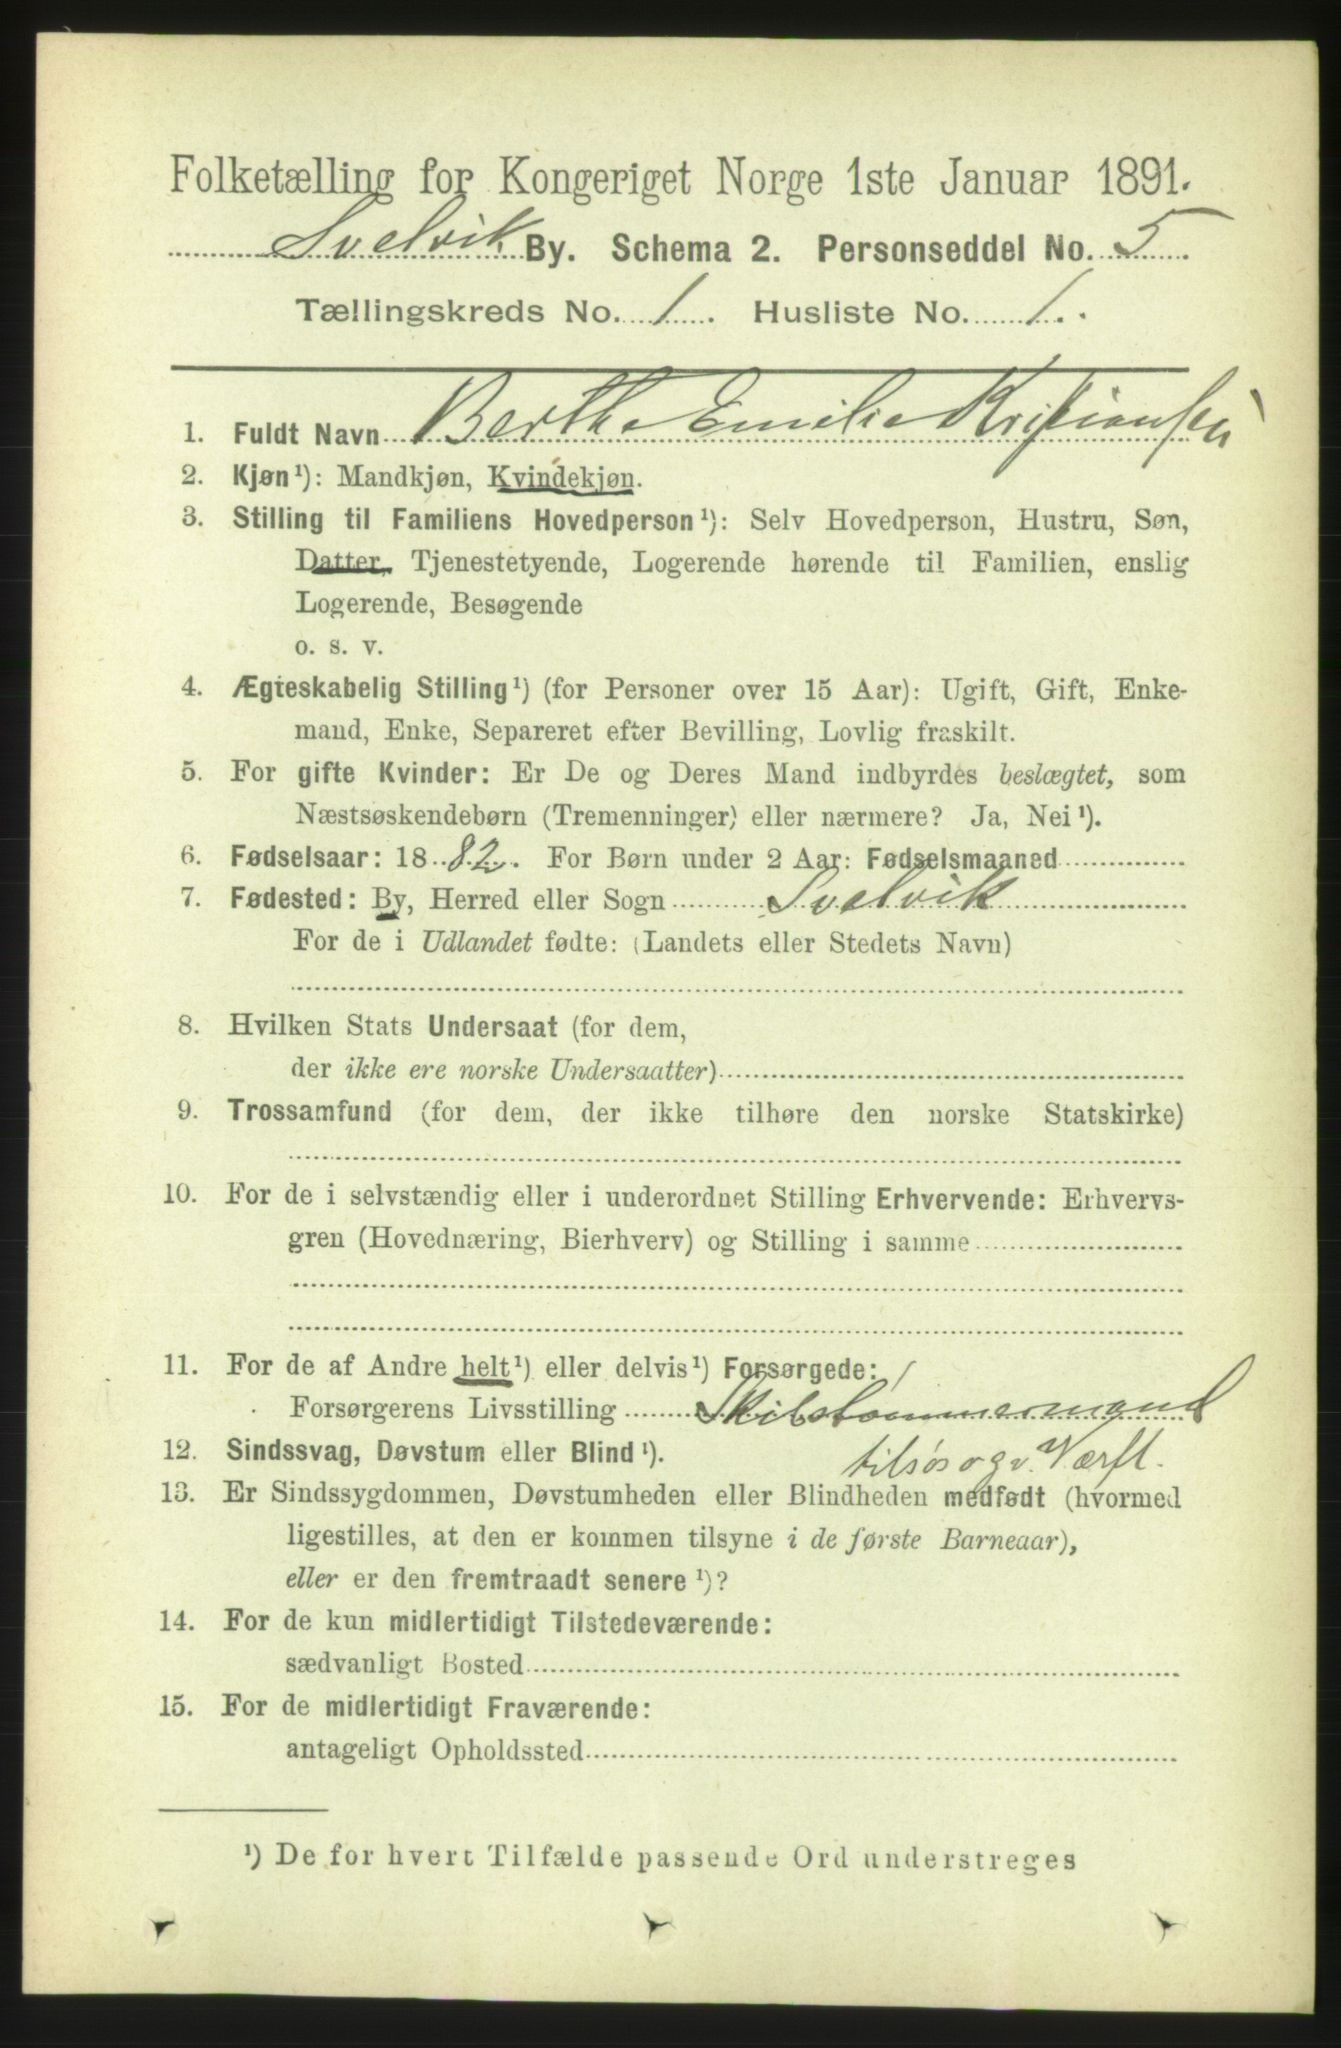 Folketælling for Kongeriget Norge 1ste Januar 1891.
Svelvik By. Schema 2. Personseddel No. 5
Tællingskreds No. 1. Husliste No. 1.
1. Fuldt Navn Berthe Emilie Kristiansen
2. Kjøn¹): Mandkjøn, Kvindekjøn.
3. Stilling til Familiens Hovedperson¹): Selv Hovedperson, Hustru, Søn,
Datter, Tjenestetyende, Logerende hørende til Familien, enslig
Logerende, Besøgende
o. s. v.
4. Ægteskabelig Stilling¹) (for Personer over 15 Aar): Ugift, Gift, Enke-
mand, Enke, Separeret efter Bevilling, Lovlig fraskilt.
5. For gifte Kvinder: Er De og Deres Mand indbyrdes beslægtet, som
Næstsøskendebørn (Tremenninger) eller nærmere? Ja, Nei¹).
6. Fødselsaar: 1882. For Børn under 2 Aar: Fødselsmaaned
7. Fødested: By, Herred eller Sogn Svelvik
For de i Udlandet fødte: (Landets eller Stedets Navn)
8. Hvilken Stats Undersaat (for dem,
der ikke ere norske Undersaatter)
9. Trossamfund (for dem, der ikke tilhøre den norske Statskirke)
10. For de i selvstændig eller i underordnet Stilling Erhvervende: Erhvervs-
gren (Hovednæring, Bierhverv) og Stilling i samme
11. For de af Andre helt¹) eller delvis¹) Forsørgede:
Forsørgerens Livsstilling Skibstømmermand
12. Sindssvag, Døvstum eller Blind¹). tilsøs og v. Værft.
13. Er Sindssygdommen, Døvstumheden eller Blindheden medfødt (hvormed
ligestilles, at den er kommen tilsyne i de første Barneaar),
eller er den fremtraadt senere¹)?
14. For de kun midlertidigt Tilstedeværende:
sædvanligt Bosted
15. For de midlertidigt Fraværende:
antageligt Opholdssted
¹) De for hvert Tilfælde passende Ord understreges